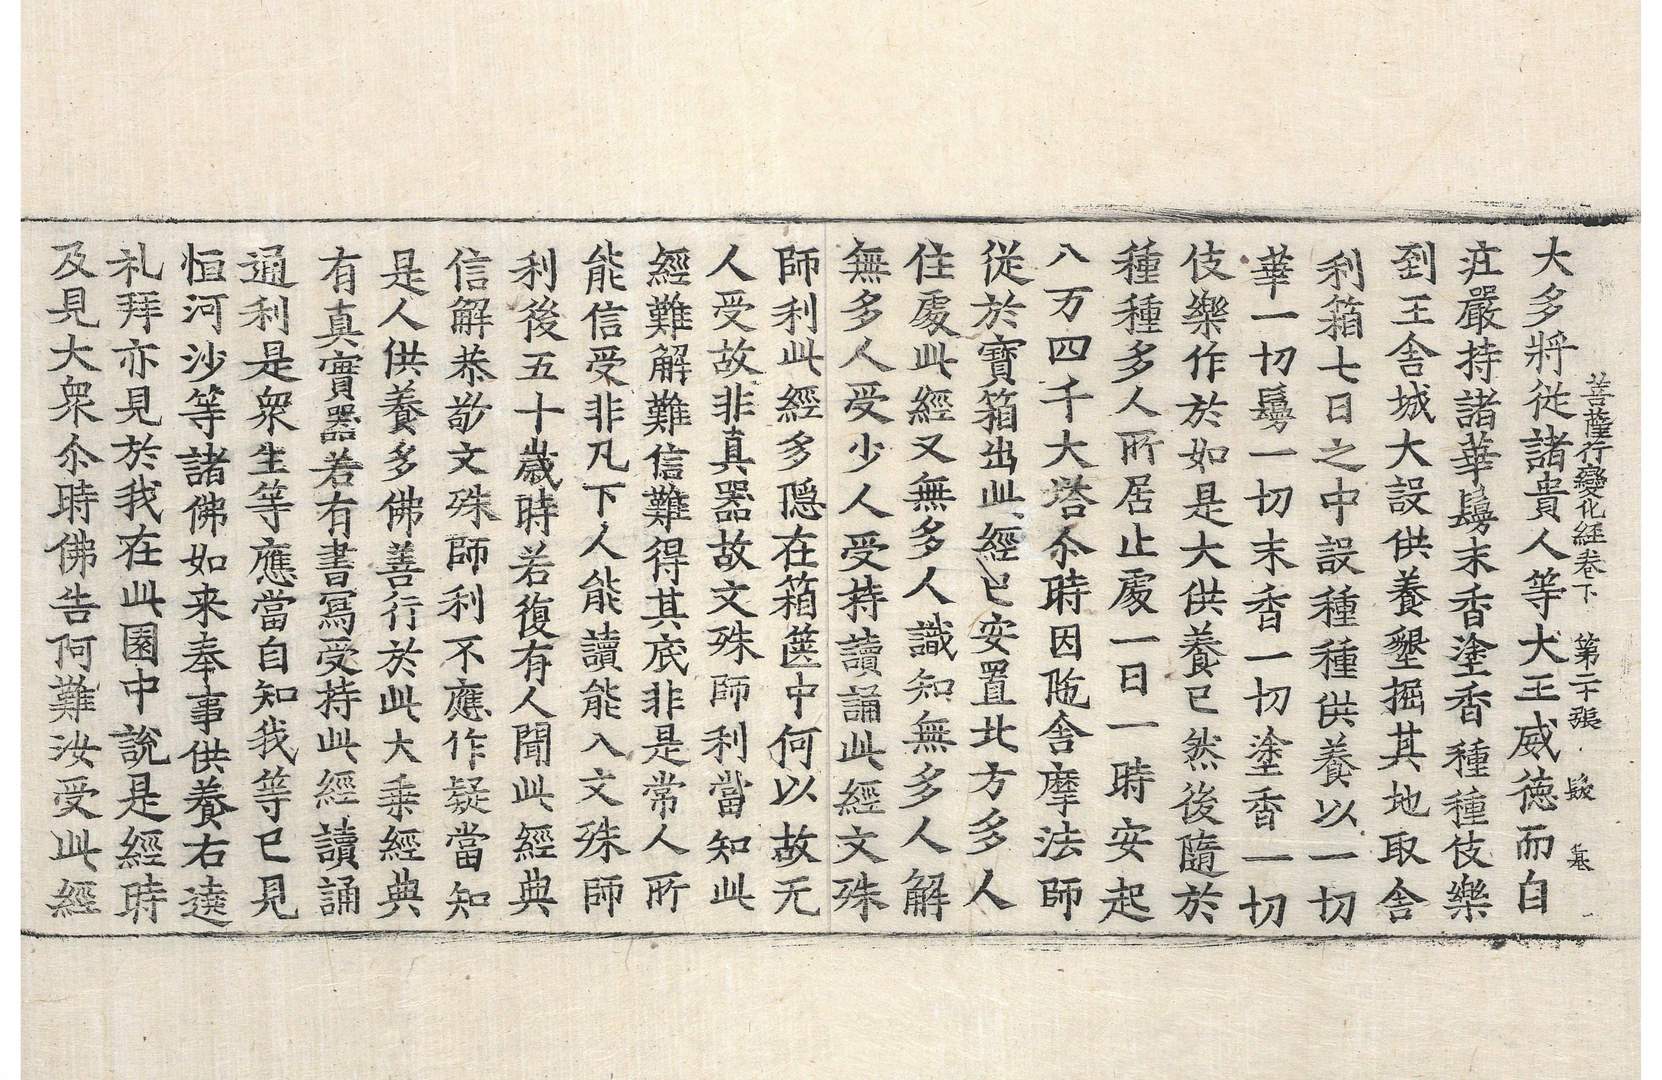 菩薩行變化經卷下 第二十張 髮
大多將從諸貴人等大王威德而自
庄嚴持諸華鬘末香塗香種種伎樂
到王舍城大設供養墾掘其地取舍
利箱七日之中設種種供養以一切
華一切鬘一切末香一切塗香一切
伎樂作於如是大供養已然後隨於
種種多人所居止處一日一時安起
八万四千大塔尒時因陁舍摩法師
從於寶箱出此經已安置北方多人
住處此經又無多人識知無多人解
無多人受少人受持讀誦此經文殊
師利此經多隱在箱篋中何以故无
人受故非真器故文殊師利當知此
經難解難信難得其底非是常人所
能信受非凡下人能讀能入文殊師
利後五十歲時若復有人聞此經典
信解恭敬文殊師利不應作疑當知
是人供養多佛善行於此大乘經典
有真實器若有書寫受持此經讀誦
通利是衆生等應當自知我等已見
恒河沙等諸佛如来奉事供養右遶
礼拜亦見於我在此園中說是經時
及見大衆尒時佛告阿難汝受此經